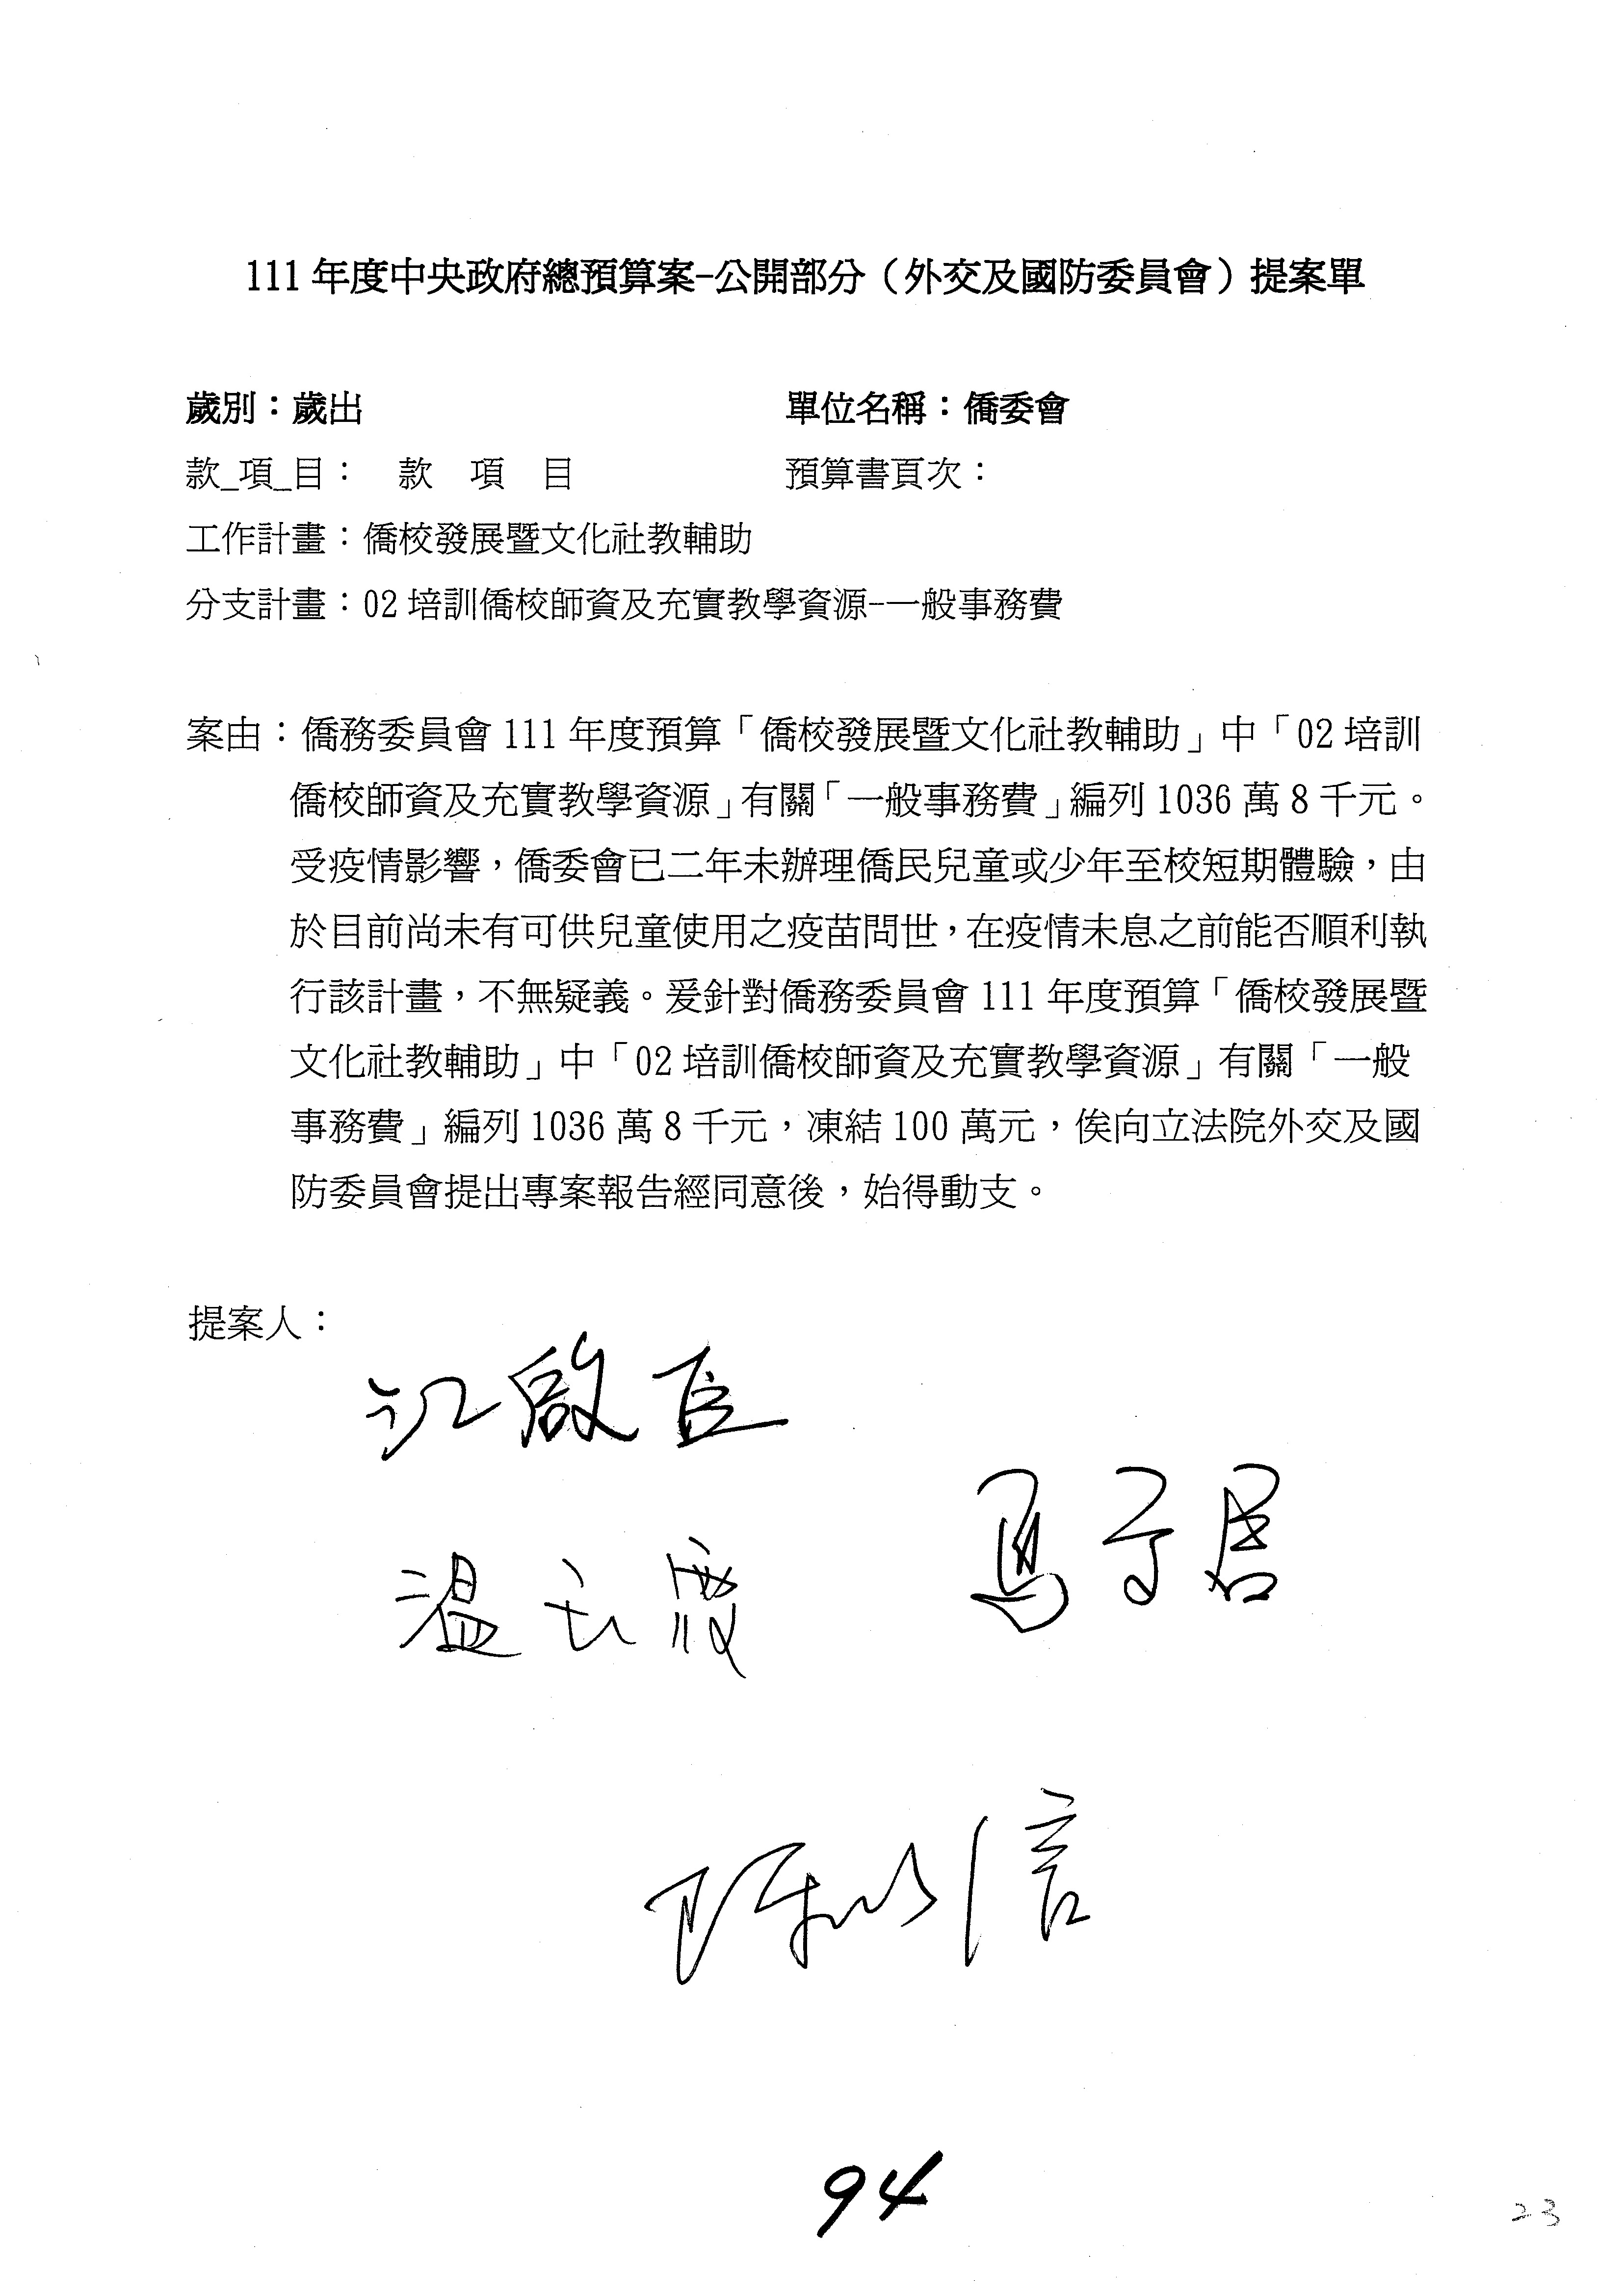 111年度中央政府總預算案-公開部分（外交及國防委員會）提案單
歲別：歲出 單位名稱：僑委會
款_項_目： 款 項 目 預算書頁次：
工作計畫：僑校發展暨文化社教輔助
分支計畫：02培訓僑校師資及充實教學資源-一般事務費
案由：僑務委員會111年度預算「僑校發展暨文化社教輔助」中「02培訓
僑校師資及充實教學資源」有關「一般事務費」編列1036萬8千元。
受疫情影響，僑委會已二年未辦理僑民兒童或少年至校短期體驗，由
於目前尚未有可供兒童使用之疫苗問世，在疫情未息之前能否順利執
行該計畫，不無疑義。爰針對僑務委員會111年度預算「僑校發展暨
文化社教輔助」中「02培訓僑校師資及充實教學資源」有關「一般
事務費」編列1036萬8千元，凍結100萬元，俟向立法院外交及國
防委員會提出專案報告經同意後，始得動支。
提案人：
江啟臣
馬文君
溫玉霞
陳以信
94
23